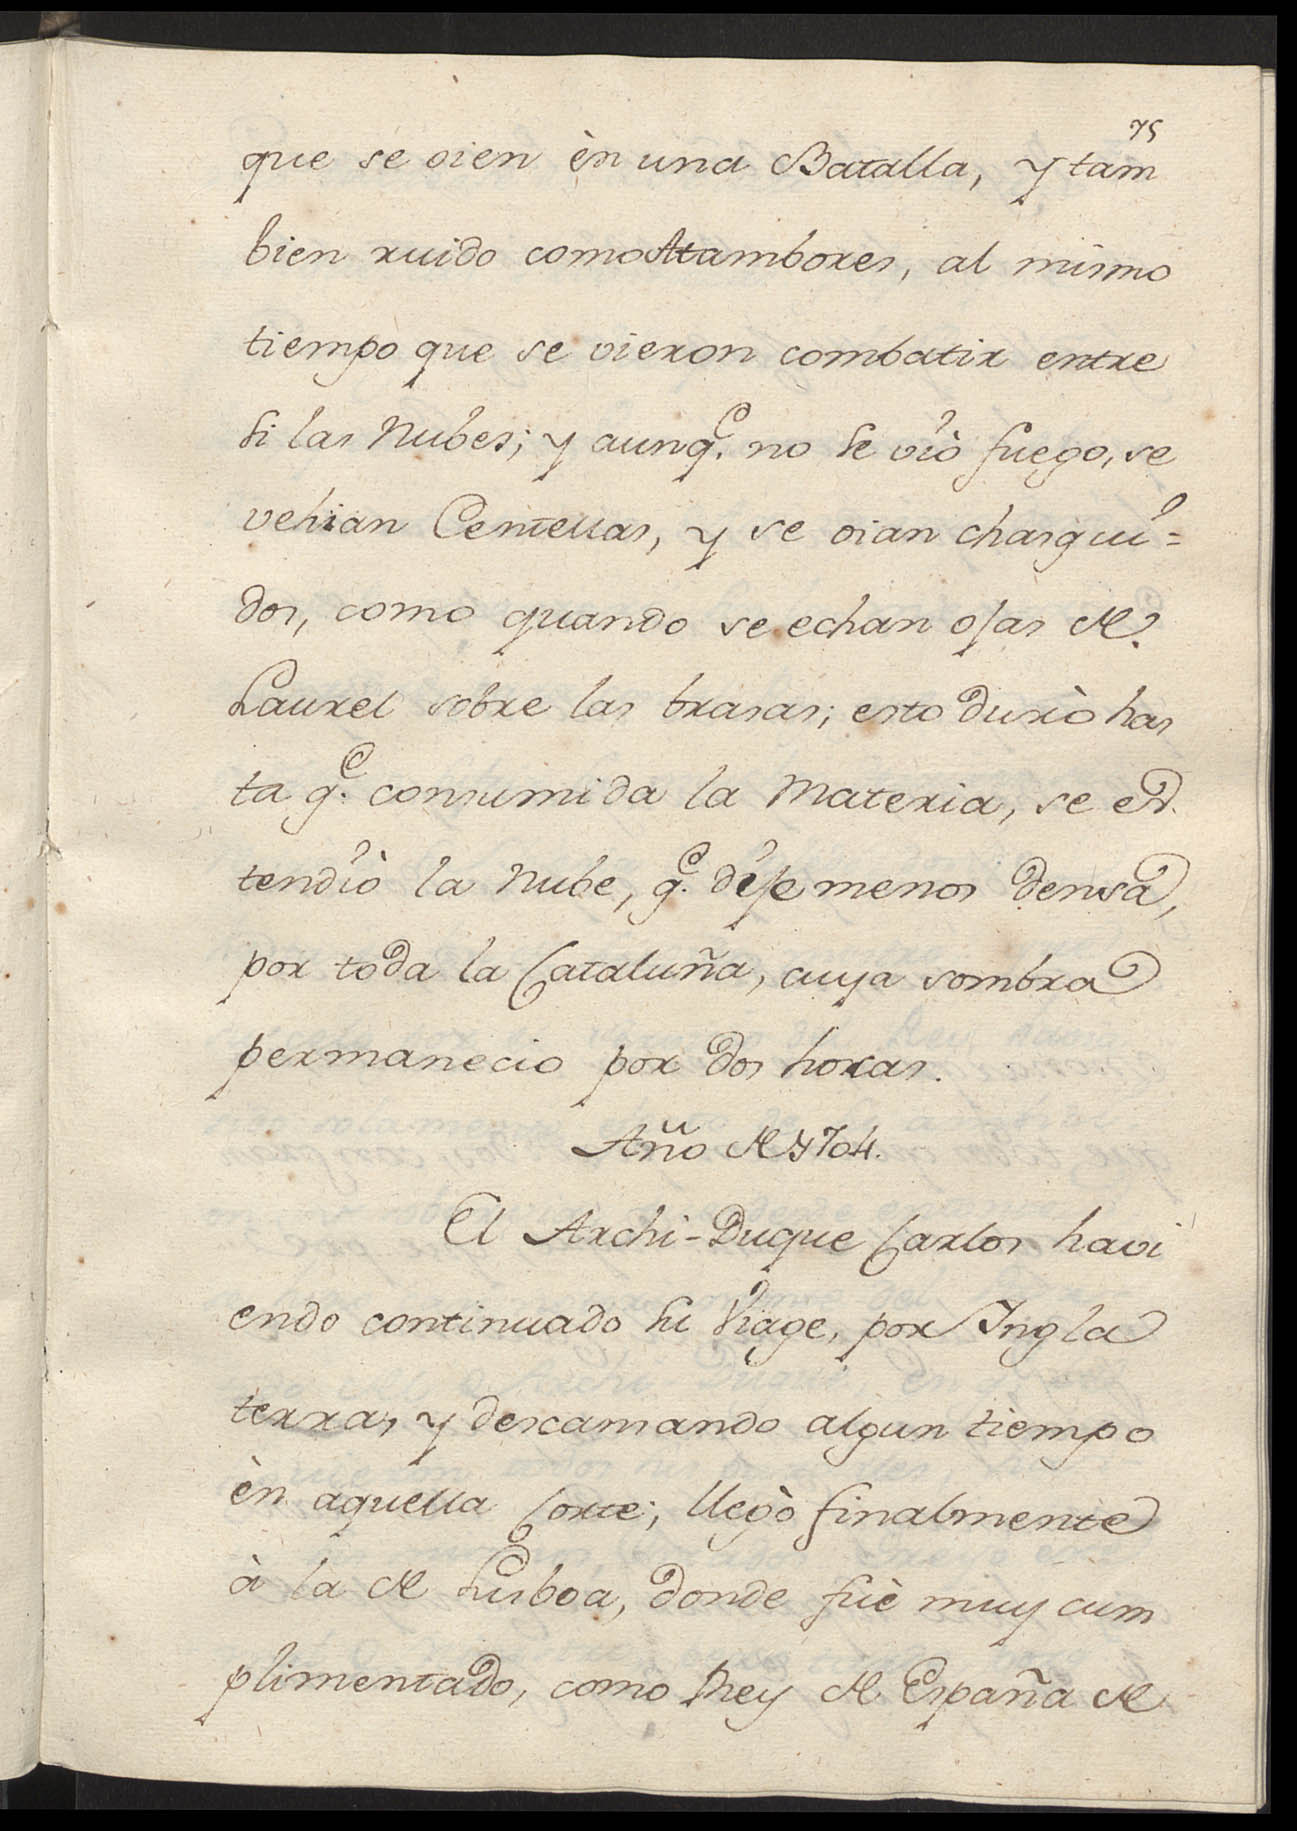 75
que se oien èn una Batalla, y tam
bien ruido como Atambores, al mismo
tiempo que se vieron combatir entre
si las Nubes; y aunq.e no se viò fuego, se
vehian Centellas, y se oian chasqui=
dos, como quando se echan ojas de
Laurel sobre las brasas; esto duriò has
ta q.e consumida la Materia, se es
tendiò la Nube, q.e dejo menos densa,
por toda la Cataluña, cuya sombra
permanecio por dos horas.
Año de 1704.
El Archi-Duque Carlos havi
endo continuado su Viage, por Ingla
terra, y descansando algun tiempo
èn aquella Corte; llegò finalmente
à la de Lisboa, donde fuè muy cum
plimentado, como Rey de España de